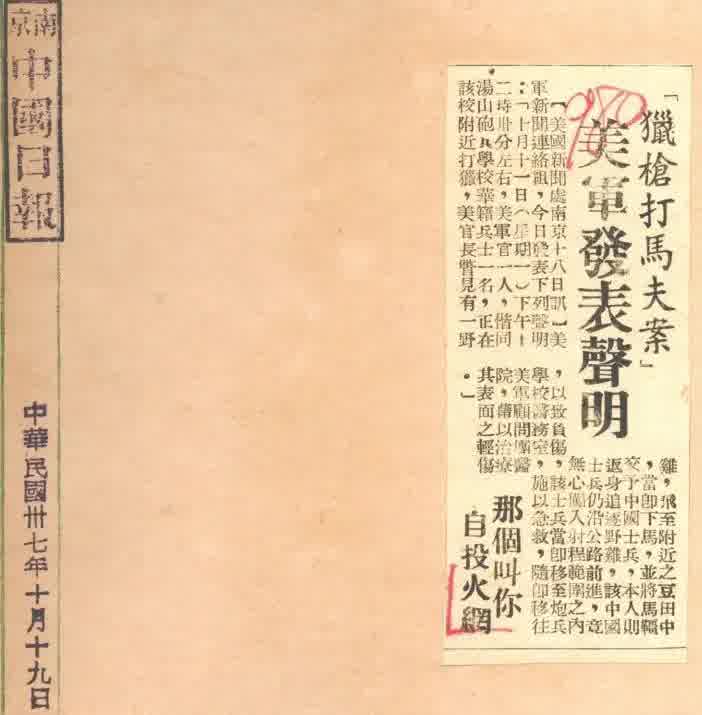 「獵槍打馬夫案」
美軍發表聲明
980
【美國新聞處南京十八日訊】美
軍新聞連絡組，今日發表下列聲明
：「十月十一日（星期一）下午十
二時卅分左右，美軍官一人，偕同
湯山砲兵學校華籍兵士一名，正在
該校附近打獵，美官長瞥見有一野
雞，飛至附近之豆田中
，當即下馬，並將馬韁
交予中國士兵，本人則
返身追逐野雞，該中國
士兵仍沿公路前進，竟
無心闖入射程範圍之內
，以致負傷，該士兵當即移至炮兵
學校醫務室，施以急救，隨即移往
美軍顧問團醫
院，藉以治療
其表面之輕傷
。」
那個叫你
自投火網
南京
中國日報
中華民國卅七年十月十九日